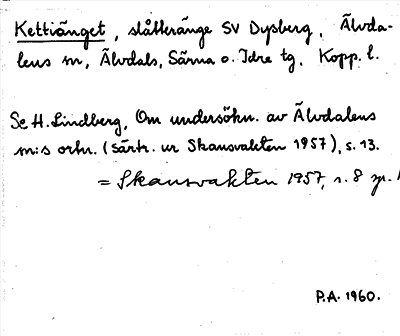 Kettiänget, slåtteränge SV Dysberg, Älvda-
lens sn, Älvdals, Särna o. Idre tg, Kopp. l.
Se H. Lindberg, Om undersökn. av Älvdalens
sn:s ortn. (särtr. ur Skansvakten 1957), s. 13.
= Skansvakten 1957, s. 8
P.A. 1960.